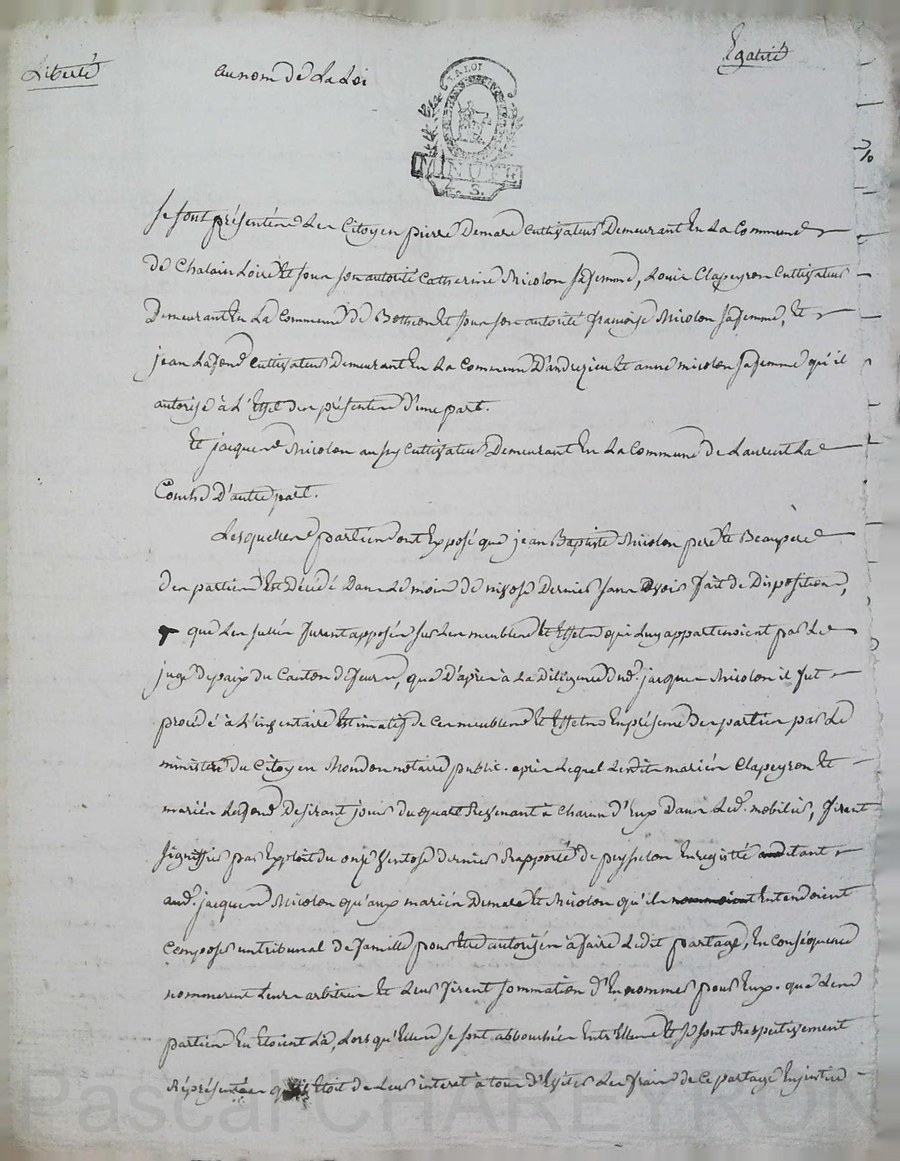 Liberté
au nom de La Loi
Egalité
LA LOI
MINUTE
Se sont présentés Les Citoyen pierre Demare Cultivateur Demeurant En La Commune
de Chalain Loire Et sous son autorité Catherine Micolon sa femme, Louis Clapeyron Cultivateur
Demeurant En La Commune de Bothéon Et sous son autorité françoise Micolon sa femme, Et
jean Lafond Cultivateur Demeurant En La Commune D'andrezieu Et anne micolon sa femme qu'il
autorise à L'Effet des présentes d'une part.
Et jacques Micolon aussy Cultivateur Demeurant En La Commune de Laurent La
Conche D'autre part.
Lesquelles parties ont Exposé que jean Baptiste Micolon pere Et Beaupere
des parties Est Décédé Dans Le mois de nivose Dernier sans avoir fait de Disposition,
que Les scellés furent apposés sur Les meubles Et Effets qui Luy appartenoient par Le
juge de paix du Canton de feurs, que D'après à La Diligence dud. jacques Micolon il fut
procédé à L'inventaire Estimatif de Ces meubles Et Effets En présence des parties par Le
ministère du Citoyen Mondon notaire public. après Lequel Lesdits mariés Clapeyron Et
mariés Lafond Desirant jouir du quart Revenant à Chacun d'Eux Dans Led. mobilier, firent
signiffier par Exploit du onze ventose dernier Rapporté de peysselon Enregistré tant
aud. jacques Micolon qu'aux mariés Demare Et Micolon qu'ils Entendoient
Composer un tribunal de famille pour Etre autorisés à faire Ledit partage, En Conséquence
nommerent Leurs arbitres Et Leur firent sommation d'En nommer pour Eux. que Les
parties En Etoient Là, Lorsqu'Elles se sont abbouchées Entr'Elles Et se sont Respectivement
Réprésentées qu'il Etoit de Leur interet à tous d'Eviter Les frais de Ce partage En justice
Pascal CHAREYRON